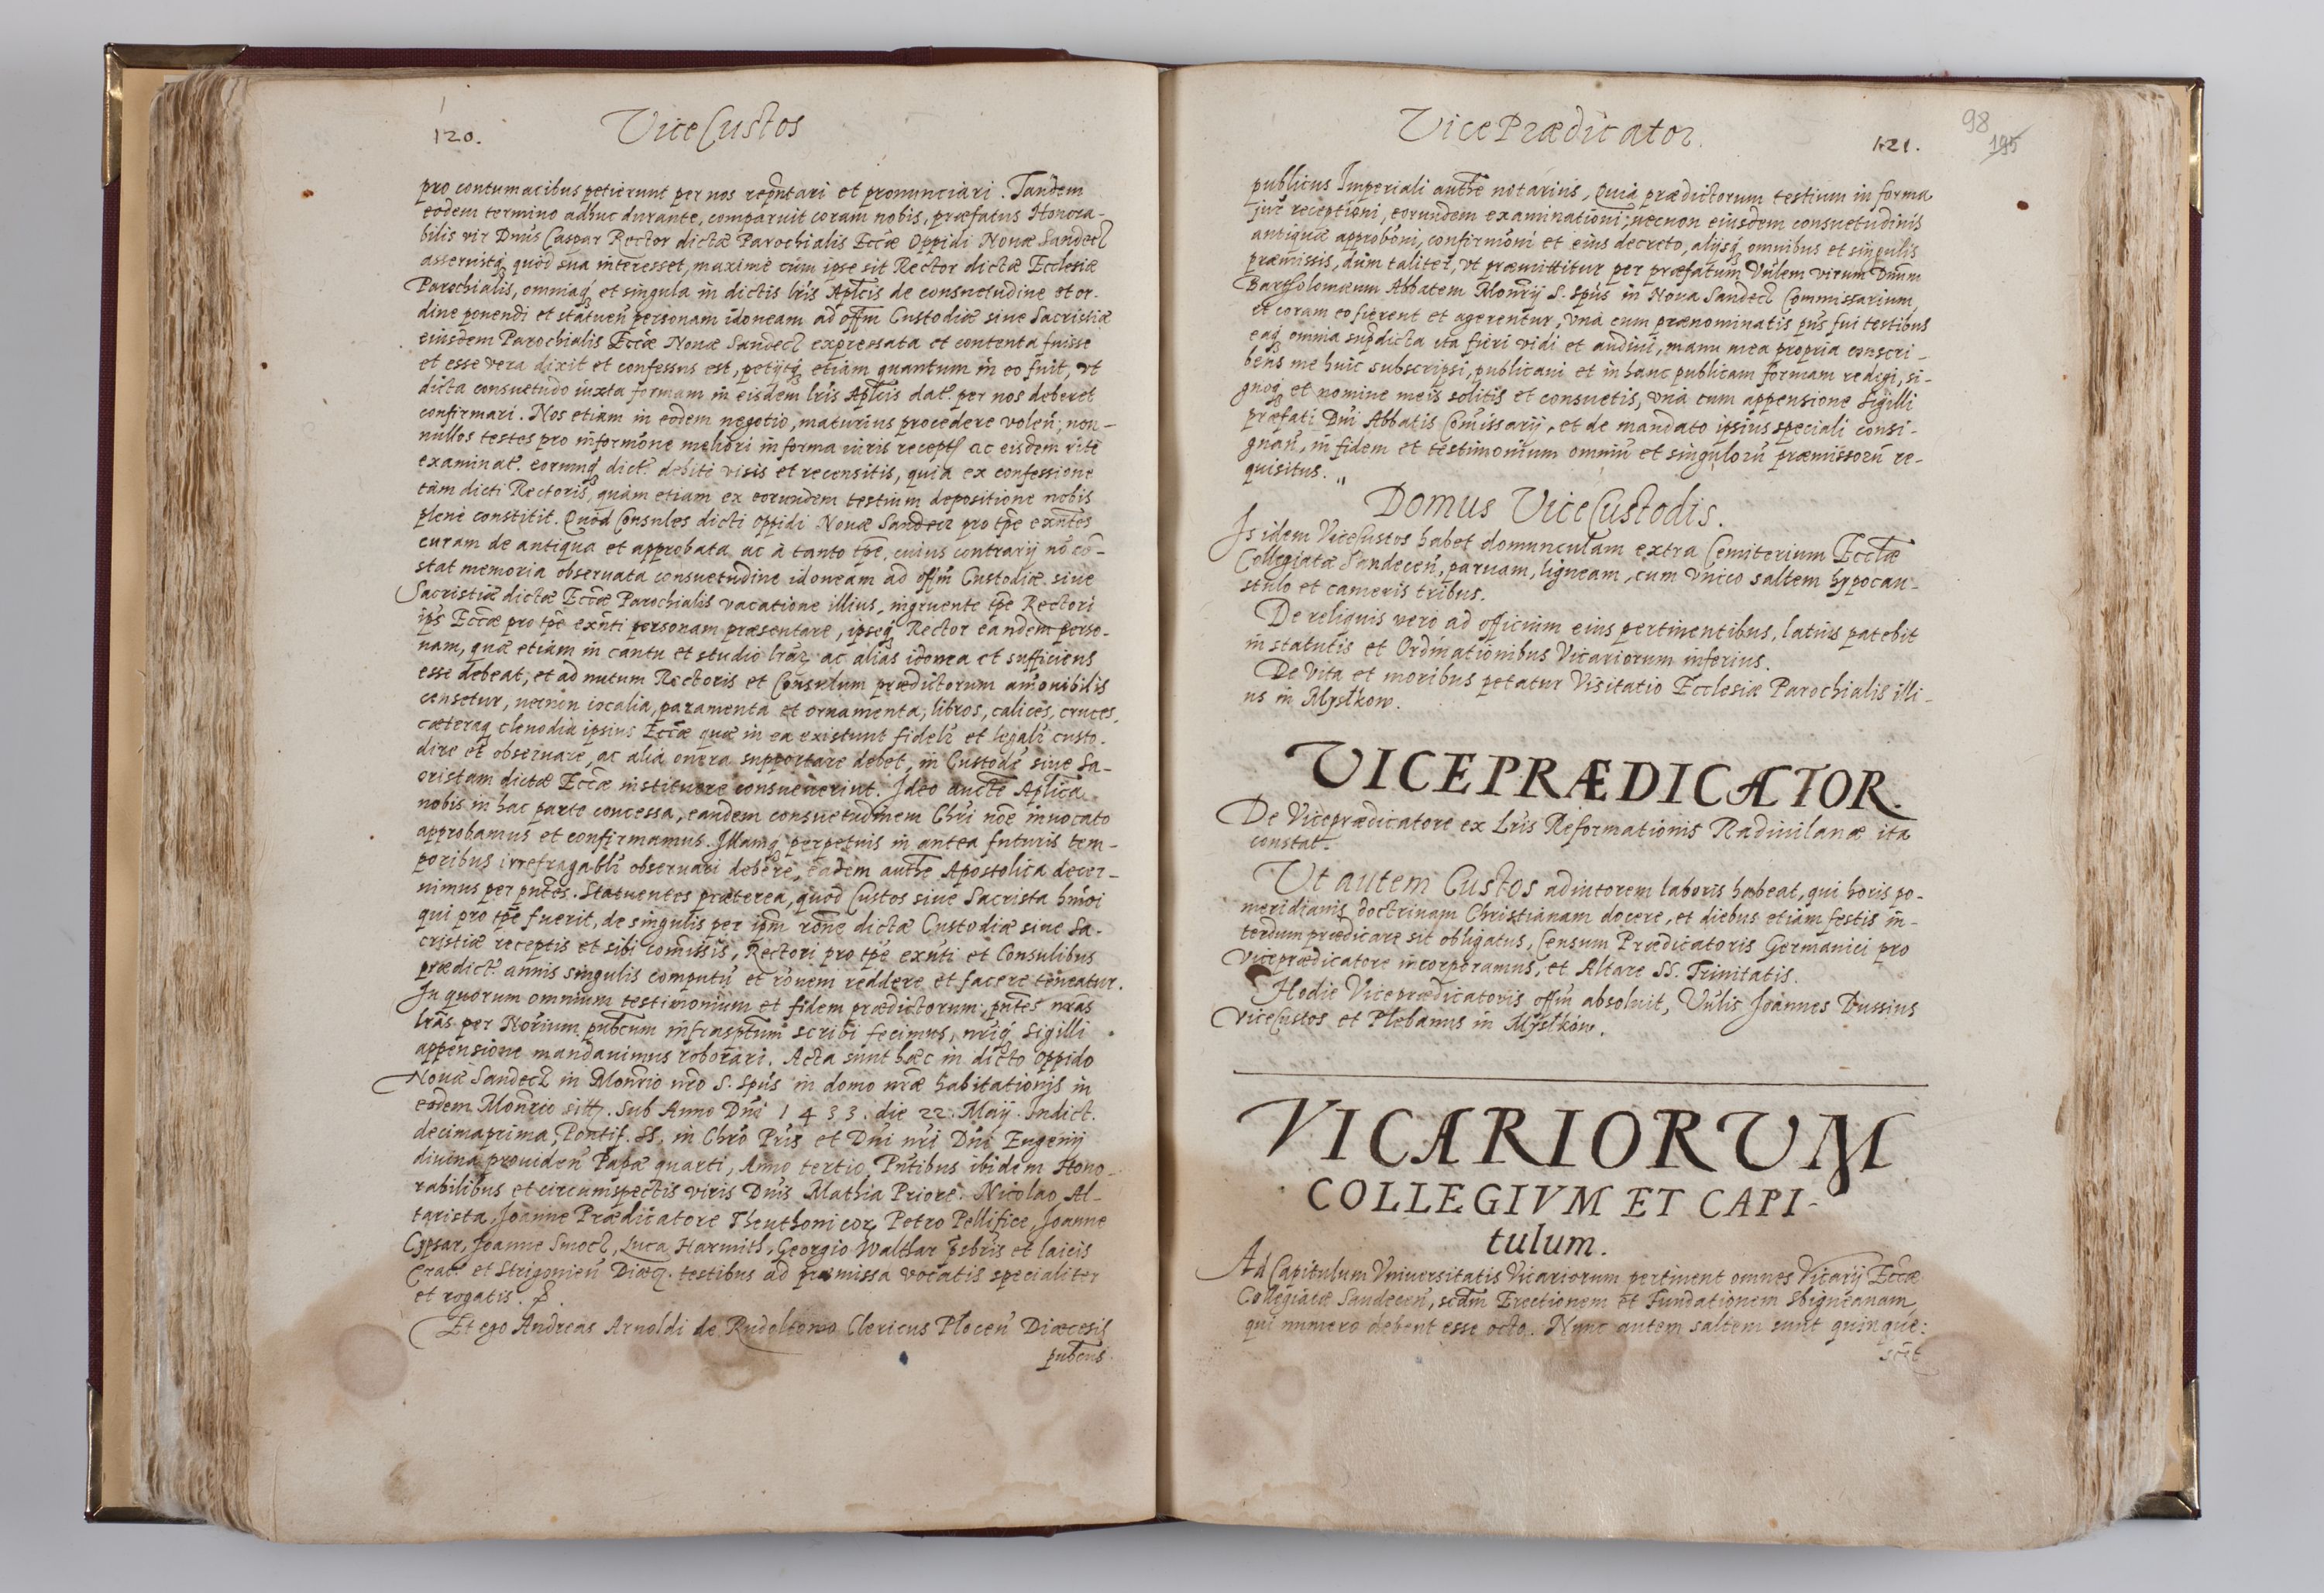 120.
ViceCustos
pro contumacibus petierunt per nos repñtari et pronunciari. Tandem
eodem termino adhuc durante, comparuit coram nobis, præfatus Honora-
bilis vir Dnûs Caspar Rector dictæ Parochialis Eccæ Oppidi Nouæ Sandecz
asseruitq quòd sua interesset, maximè cùm ipse sit Rector dictæ Ecclesiæ
Parochialis, omniaq et singula in dictis lris Aplcis de consuetudine et or-
dine ponendi et statuen personam idoneam ad offm Custodiæ siue Sacristiæ
eiusdem Parochialis Eccæ Nouæ Sandecz expressata et contenta fuisse
et esse vera dixit et confessus est, petijtq etiam quantum in eo fuit, vt
dicta consuetudo iuxta formam in eisdem lris Aplcis dat. per nos deberet
confirmari. Nos etiam in eodem negotio, maturius procedere volen, non-
nullos testes pro informone meliori in forma iuris recept ac eisdem ritè
examinat. eorumq dict. debitè visis et recensitis, quia ex confessione
tàm dicti Rectoris, quàm etiam ex eorundem testium depositione nobis
plenè constitit. Quòd Consules dicti Oppidi Nouæ Sandecz pro tpe exntes
curam de antiqua et approbata ac à tanto tpe, cuius contrarij nõ cõ-
stat memoria obseruata consuetudine idoneam ad offm Custodiæ siue
Sacristiæ dictæ Eccæ Parochialis vacatione illius, ingruente tpe Rectori
ips Eccæ pro tpe exnti personam præsentare, ipseq Rector eandem perso-
nam, quæ etiam in cantu et studio lrar ac aliàs idonea et sufficiens
esse debeat, et ad nutum Rectoris et Consulum prædictorum amouibilis
censetur, necnon iocalia, paramenta et ornamenta, libros, calices, cruces,
cæteraq clenodia ipsius Eccæ quæ in ea existunt fidelr et legalr custo-
dire et obseruare, ac alia onera supportare debet, in Custodẽ siue Sa-
cristam dictæ Eccæ instituere consueuerint. Ideo aucte Aplica
nobis in hac parte concessa, eandem consuetudinem Chri nõe inuocato
approbamus et confirmamus. Illamq perpetuis in antea futuris tem-
poribus irrefragablr obseruari debere, eadem authe Apostolica decer-
nimus per pntes. Statuentes præterea, quòd Custos siue Sacrista hmõi
qui pro tpe fuerit, de singulis per ipm rõne dictæ Custodiæ siue Sa-
cristiæ receptis et sibi comissis, Rectori pro tpe exnti et Consulibus
prædict. annis singulis computũ et rõnem reddere et facere teneatur.
In quorum omnium testimonium et fidem prædictorum, pntes nras
lras per Norium pubcum infrasptum scribi fecimus, nriq Sigilli
appensione mandauimus roborari. Acta sunt hæc in dicto Oppido
Noua Sandecz in Monrio nro S. Spûs in domo nræ habitationis in
eodem Monrio sitt. Sub Anno Dni 1433. die 22. Maij. Indict.
decimaprima, Pontif. SS. in Chro Pris et Dni nri Dni Eugenij
diuina prouiden Papæ quarti, Anno tertio. Pntibus ibidem Hono-
rabilibus et circumspectis viris Dnis Mathia Priore. Nicolao Al-
tarista, Joanne Prædicatore Theuthonicor, Petro Pellifice, Joanne
Cypsar, Joanne Smocz, Luca Harmith, Georgio Walthar psbris et laicis
Crac. et Strigonien Diæc. testibus ad præmissa vocatis specialiter
et rogatis.
Et ego Andreas Arnoldi de Rudoltowo Clericus Plocen Diæcesis
pubcus
VicePrædicator.
121.
98
195
publicus Imperiali authe notarius, Quia prædictorum testium in forma
jur receptioni, eorundem examinationi, necnon eiusdem consuetudinis
antiquæ approboni, confirmoni et eius decreto, alijsq omnibus et singulis
præmissis, dum taliter, vt præmittitur per præfatum Vnlem virum Dnum
Bartholomæum Abbatem Monrij S. Spûs in Noua Sandecz Commissarium
et coram eo fierent et agerentur, vnà cum prænominatis pns fui testibus
eaq omnia supdicta ita fieri vidi et audiui, manu mea propria conscri-
bens me huic subscripsi, publicaui et in hanc publicam formam redegi, si-
gnoq et nomine meis solitis et consuetis, vnà cum appensione Sigilli
præfati Dni Abbatis Comissarij, et de mandato ipsius speciali consi-
gnaui, in fidem et testimonium omniũ et singulorũ præmissorũ re-
quisitus.
Domus ViceCustodis.
Is idem ViceCustos habet domunculam extra Cemiterium Ecclæ
Collegiatæ Sandecen, paruam, ligneam, cum vnico saltem hypocau-
stulo et cameris tribus.
De reliquis vero ad officium eius pertinentibus, latius patebit
in statutis et Ordinationibus Vicariorum inferius.
De vita et moribus petatur Visitatio Ecclesiæ Parochialis illi-
us in Mystkow.
VICEPRÆDICATOR.
De Viceprædicatore ex Lris Reformationis Radiuilanæ ita
constat.
Ut autem Custos adiutorem laboris habeat, qui horis po-
meridianis doctrinam Christianam docere, et diebus etiam festis in-
terdum prædicare sit obligatus, Censum Prædicatoris Germanici pro
viceprædicatore incorporamus, et Altare SS. Trinitatis.
Hodie Viceprædicatoris offm absoluit, Vnlis Joannes Dussius
viceCustos et Plebanus in Mystków.
VICARIORUM
COLLEGIVM ET CAPI-
tulum.
Ad Capitulum Vniuersitatis Vicariorum pertinent omnes Vicarij Eccæ
Collegiatæ Sandecen, scdm Erectionem et Fundationem Sbigneanam,
qui numero debent esse octo. Nunc autem saltem sunt quinque:
scet